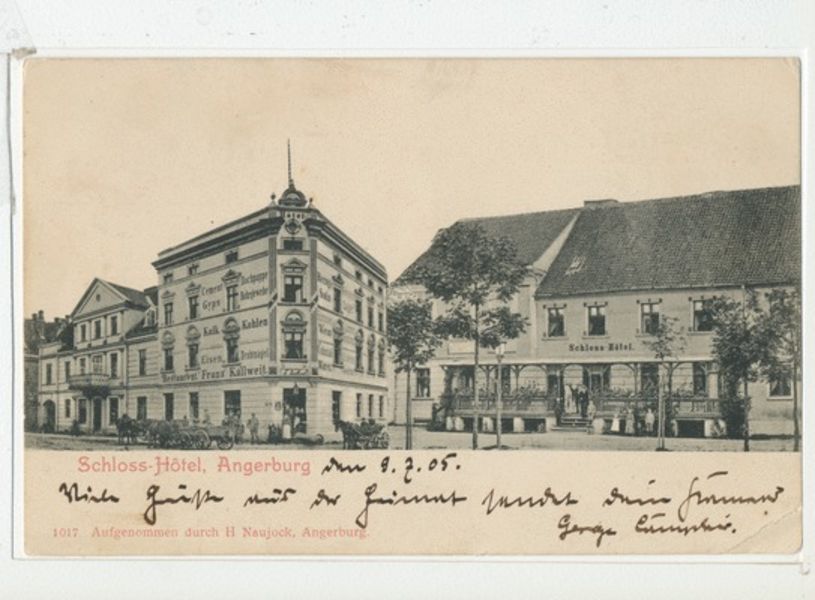 Cement
Gyps
Dachpappe
Rohrgewebe
Kalk
Kohlen
Eisen
Drahtnägel
Restaurant Franz Kallweit
Schloss Hôtel.
Schloss-Hôtel, Angerburg den 9.7.05.
Viele Grüße aus der Heimat sendet dein
1017 Aufgenommen durch H Naujock, Angerburg.